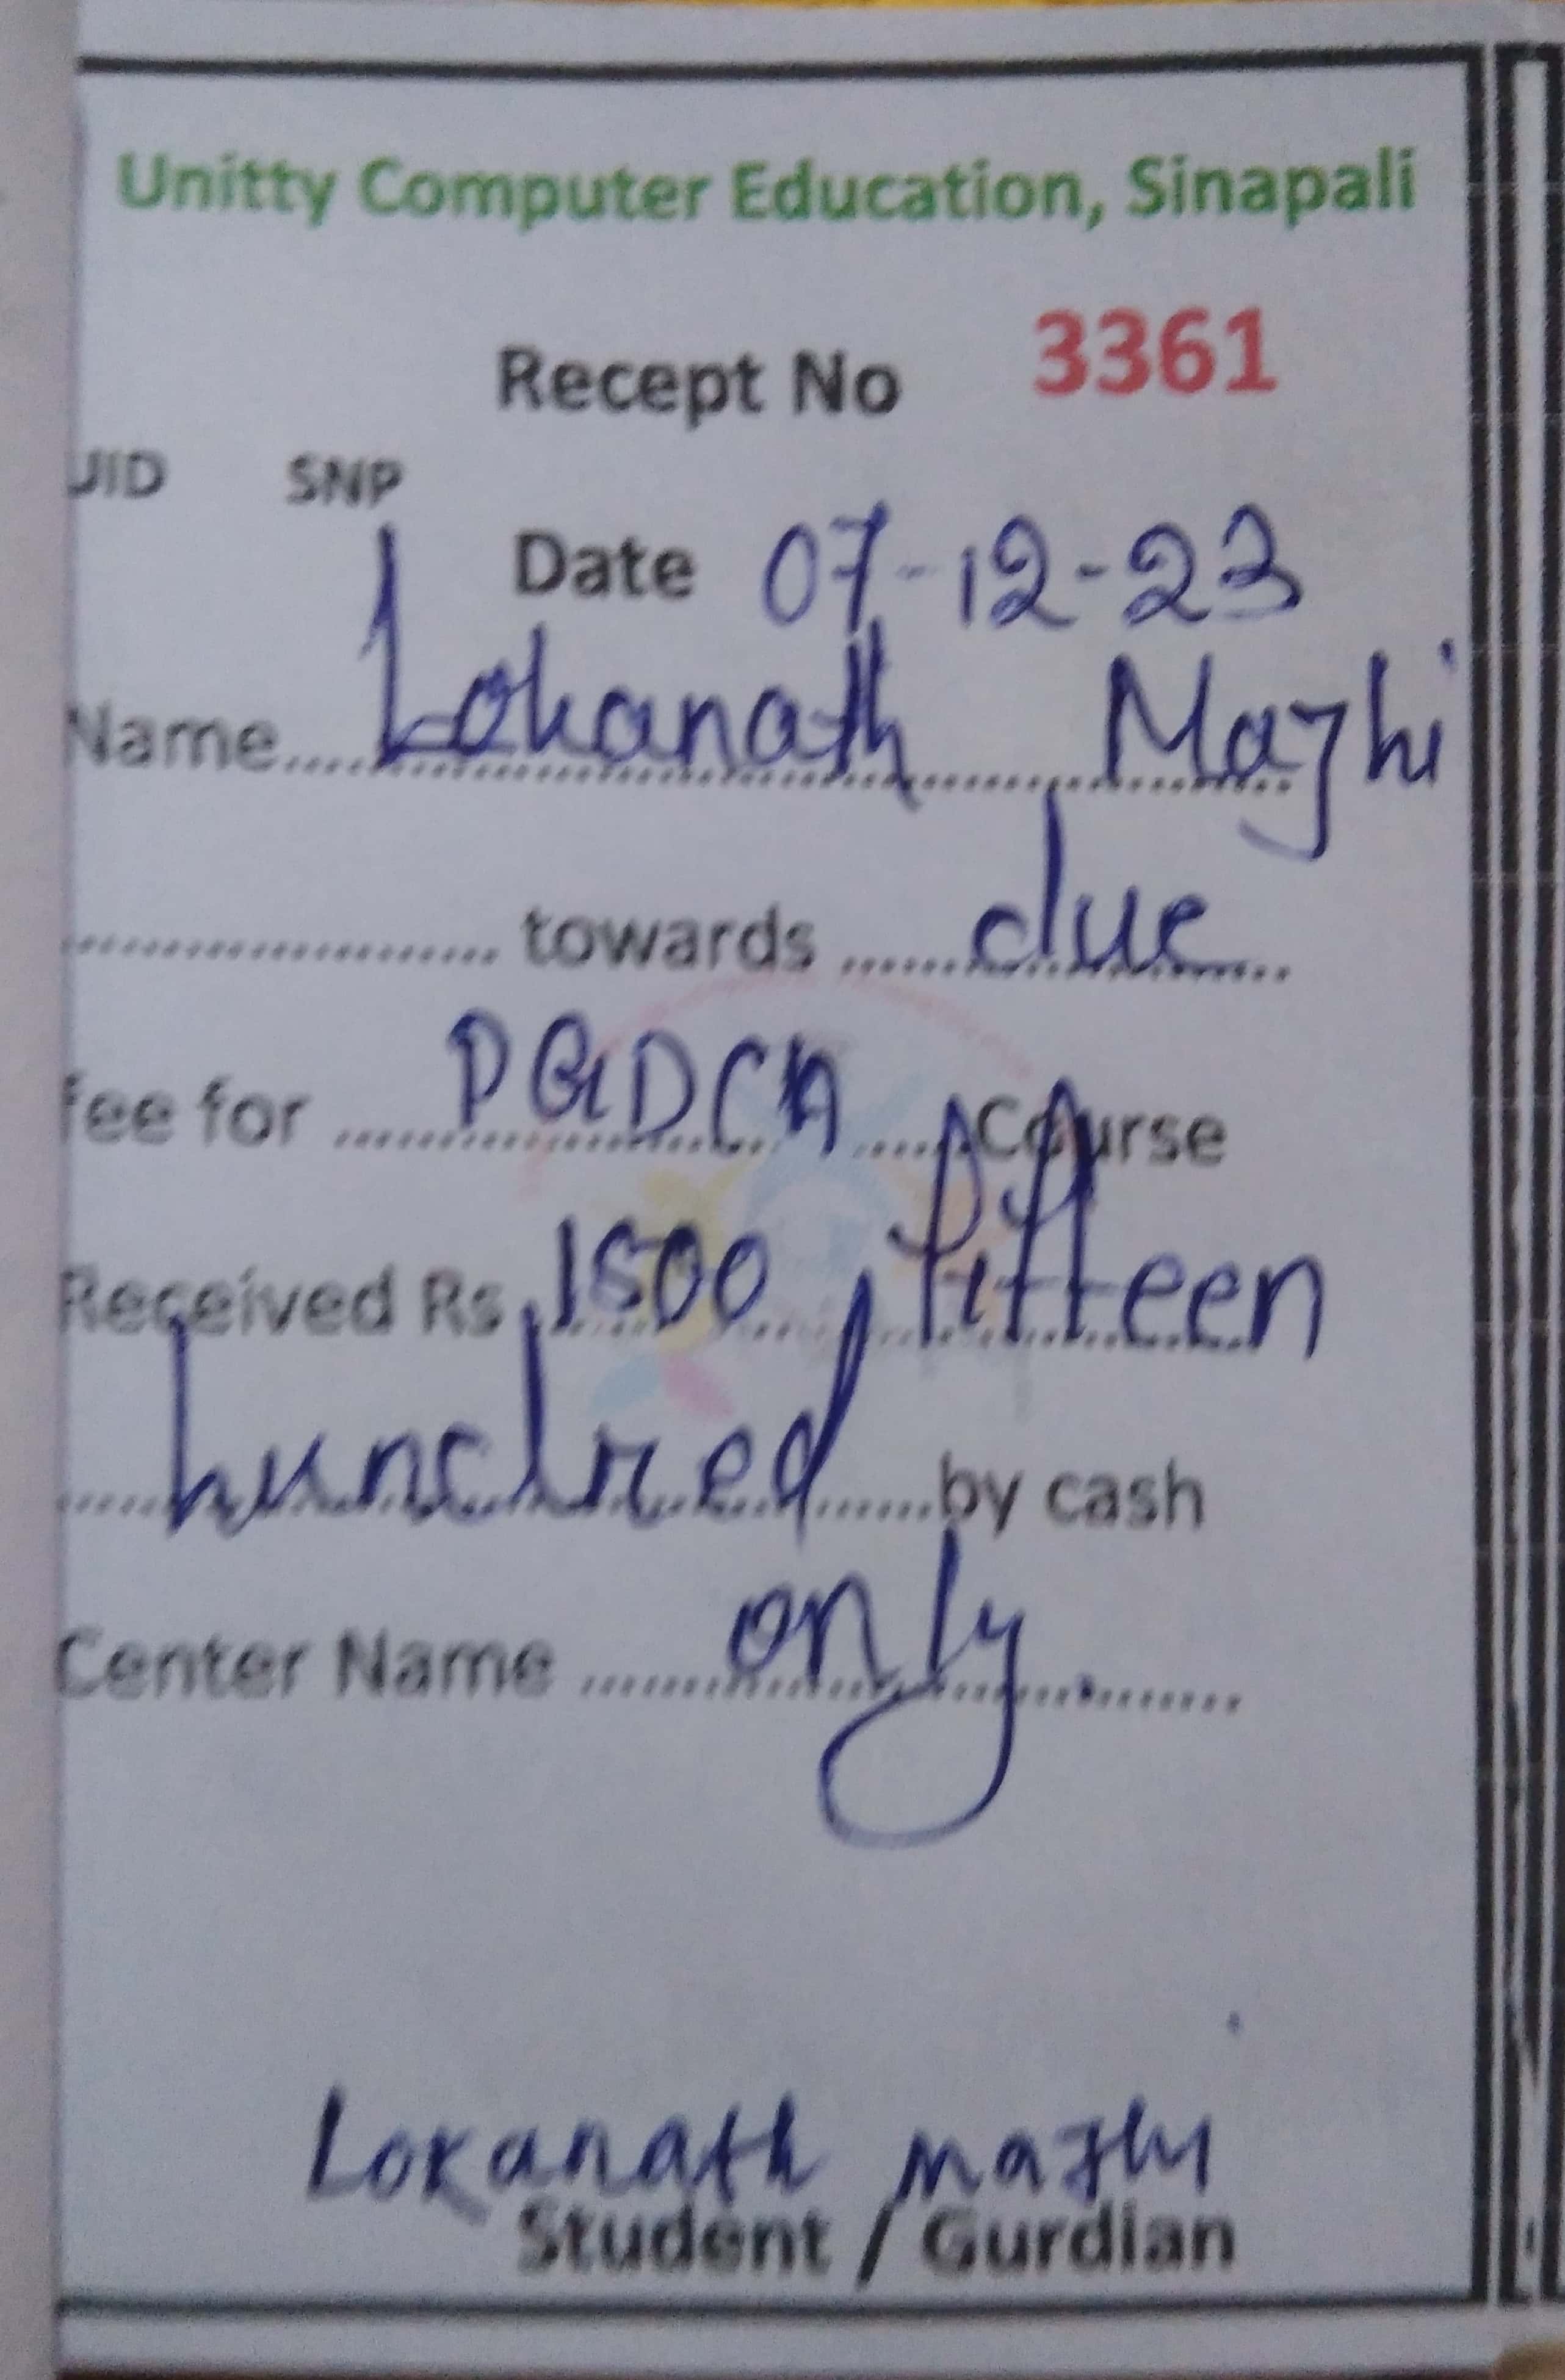 Unitty Computer Education, Sinapali
Recept No 3361
UID SNP
Date 07-12-23
Name.................. Lokanath Majhi
.................... towards ...... due
fee for ...... PGDCA ...... Course
Received Rs 1500, fifteen
hundred ......by cash
Center Name ...... only.
Lokanath majhi
Student / Gurdian